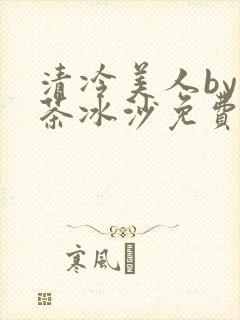 清冷美人by
茶冰沙免費
寒風